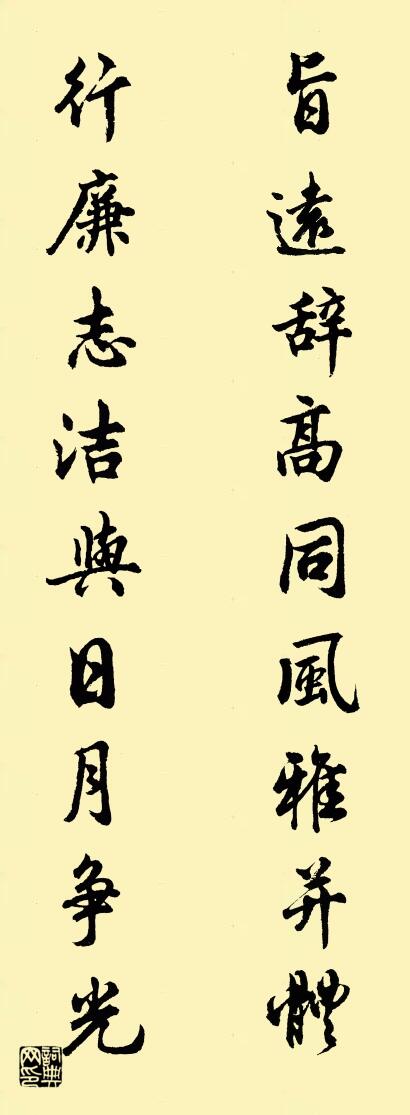 旨遠辞高同風雅并體
行廉志洁與日月争光
詞典网印